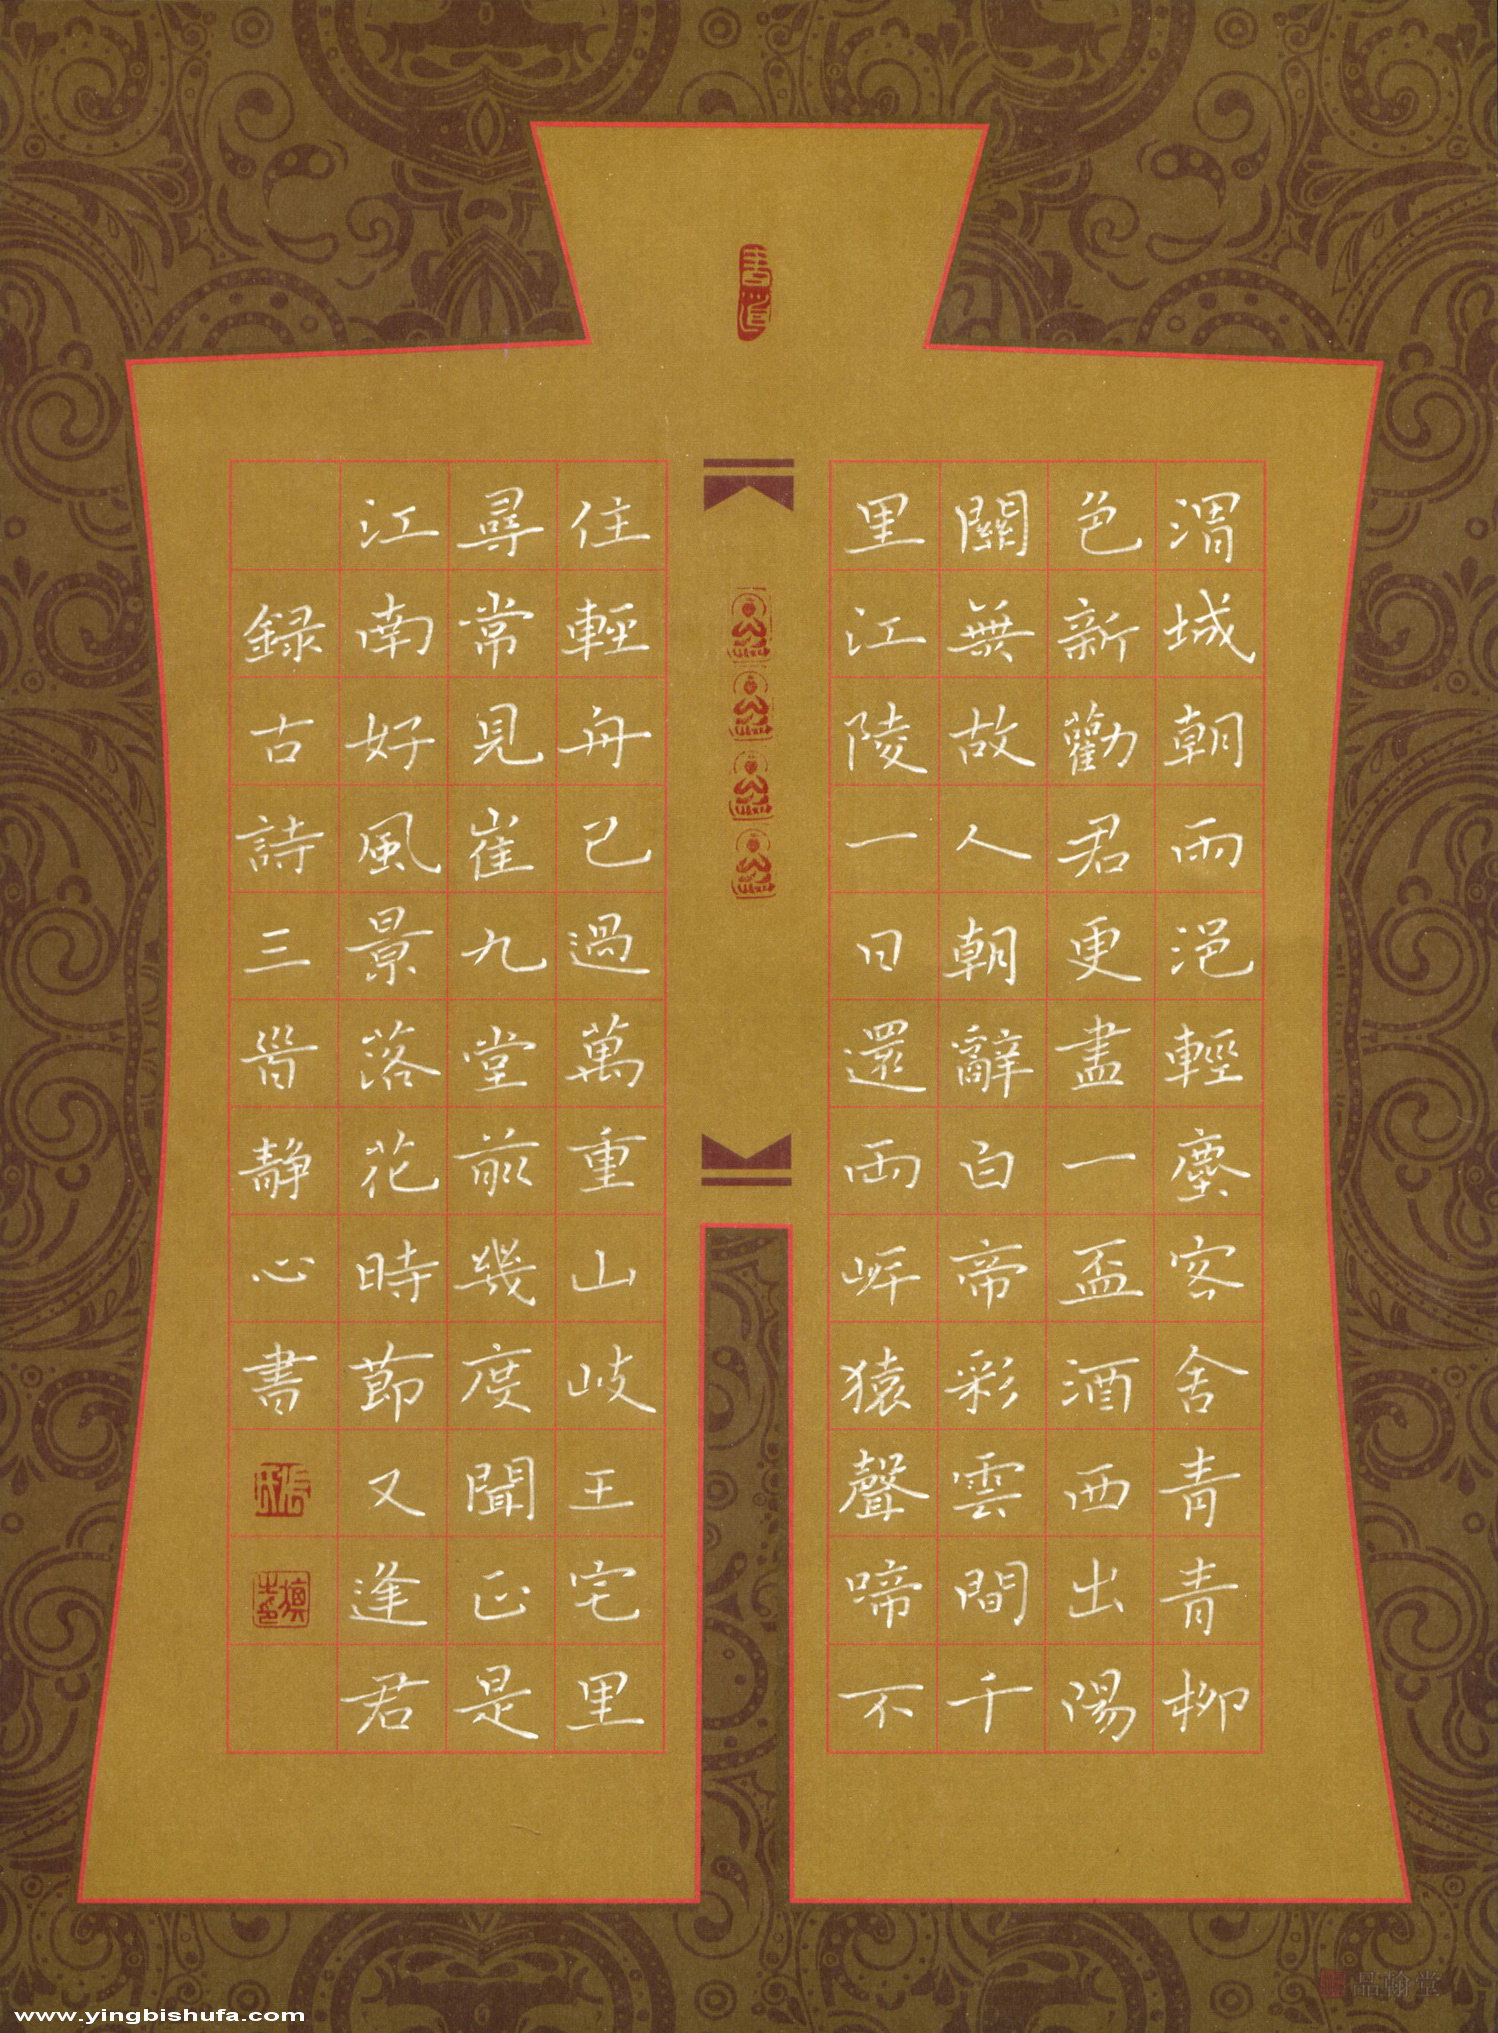 渭城朝雨浥輕塵客舍青青柳
色新勸君更盡一盃酒西出陽
關無故人朝辭白帝彩雲間千
里江陵一日還兩岸猿聲啼不
住輕舟已過萬重山岐王宅里
尋常見崔九堂前幾度聞正是
江南好風景落花時節又逢君
録古詩三首静心書
品翰堂
www.yingbishufa.com